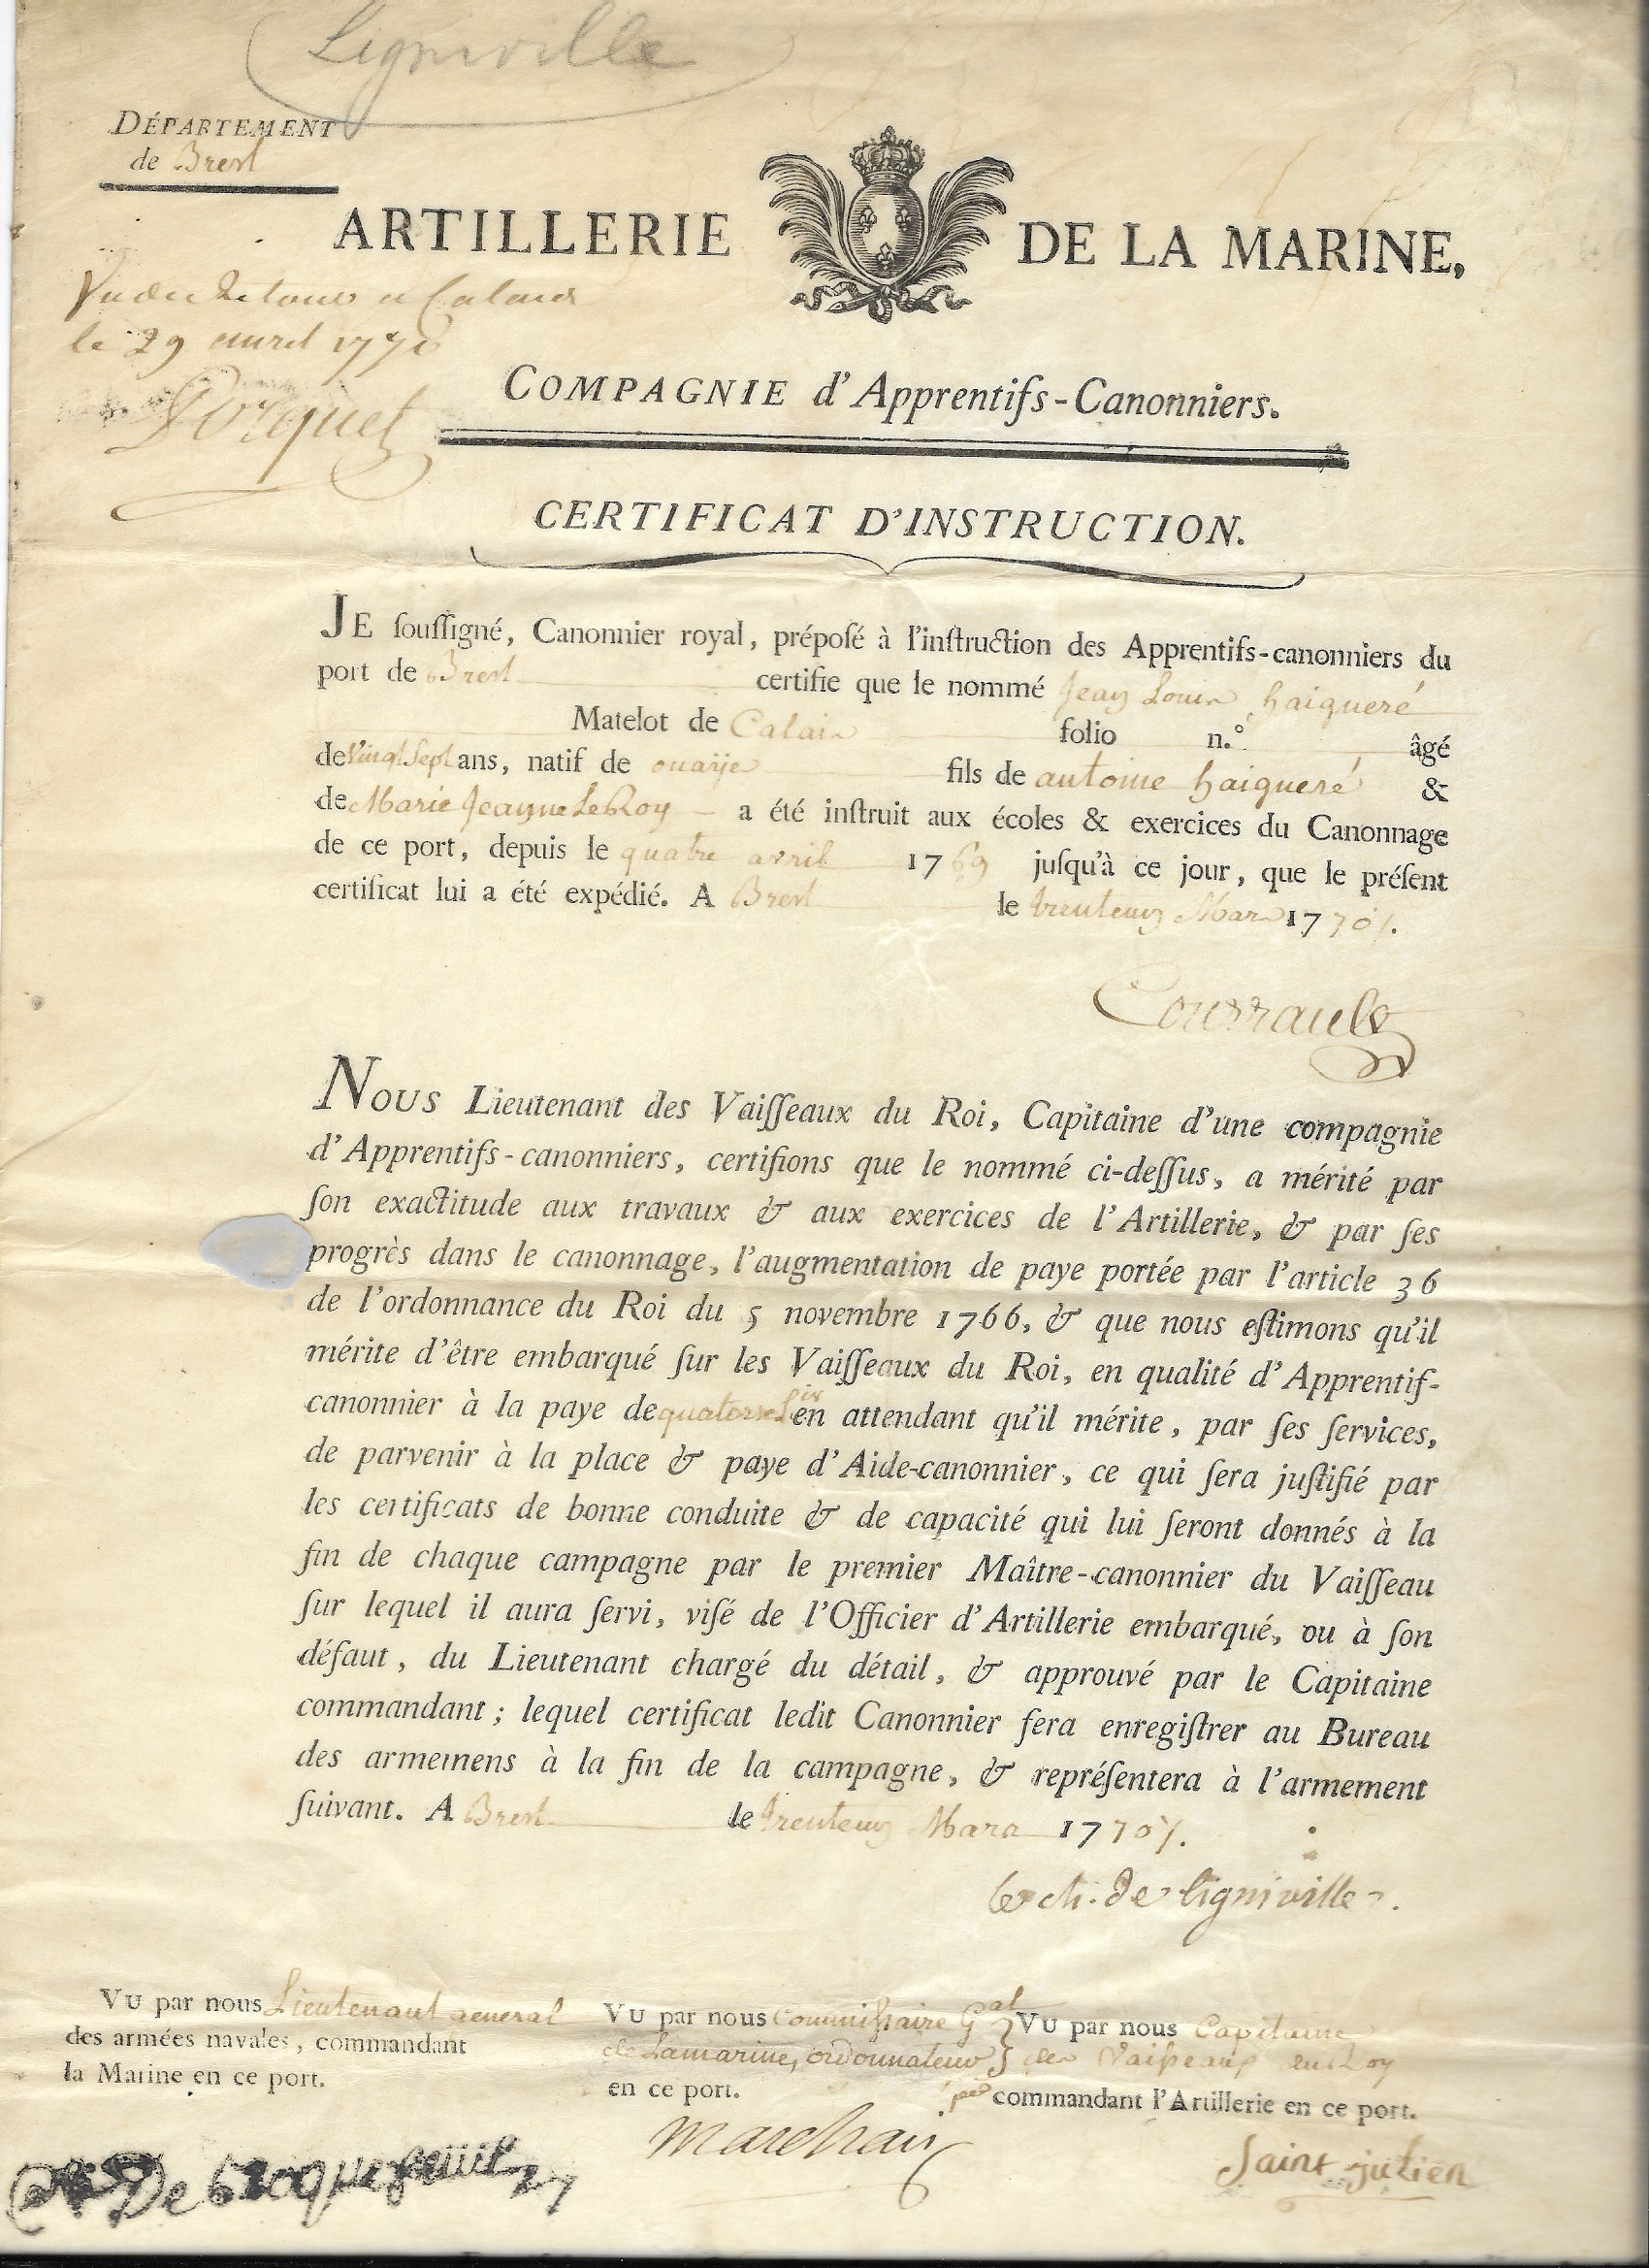 Ligniville
DÉPARTEMENT
de Brest
ARTILLERIE DE LA MARINE,
Vu de Retour a Calais
le 29 avril 1770
COMPAGNIE d'Apprentifs-Canonniers.
CERTIFICAT D'INSTRUCTION.
JE ſouſſigné, Canonnier royal, prépoſé à l'inſtruction des Apprentifs-canonniers du
port de Brest certifie que le nommé Jean Louis haigneré
Matelot de Calais folio n.º âgé
de Vingt Sept ans, natif de ouaÿe fils de antoine haigneré &
de Marie Jeanne LeRoy a été inſtruit aux écoles & exercices du Canonnage
de ce port, depuis le quatre avril 1769 juſqu'à ce jour, que le préſent
certificat lui a été expédié. A Brest le trenteun Mars 1770 ·/.
Courrault
NOUS Lieutenant des Vaiſſeaux du Roi, Capitaine d'une compagnie
d'Apprentifs-canonniers, certifions que le nommé ci-deſſus, a mérité par
ſon exactitude aux travaux & aux exercices de l'Artillerie, & par ſes
progrès dans le canonnage, l'augmentation de paye portée par l'article 36
de l'ordonnance du Roi du 5 novembre 1766, & que nous eſtimons qu'il
mérite d'être embarqué ſur les Vaiſſeaux du Roi, en qualité d'Apprentif-
canonnier à la paye de quatorze en attendant qu'il mérite, par ſes ſervices,
de parvenir à la place & paye d'Aide-canonnier, ce qui ſera juſtifié par
les certificats de bonne conduite & de capacité qui lui ſeront donnés à la
fin de chaque campagne par le premier Maître-canonnier du Vaiſſeau
ſur lequel il aura ſervi, viſé de l'Officier d'Artillerie embarqué, ou à ſon
défaut, du Lieutenant chargé du détail, & approuvé par le Capitaine
commandant; lequel certificat ledit Canonnier fera enregiſtrer au Bureau
des armemens à la fin de la campagne, & repréſentera à l'armement
ſuivant. A Brest le trenteun Mars 1770 ·/.
Le ch. de ligniville
VU par nous Lieutenant general
des armées navales, commandant
la Marine en ce port.
VU par nous Commissaire Gal
de Lamarine, ordonnateur
en ce port.
Marchais
VU par nous Capitaine
des Vaisseaux du Roy
commandant l'Artillerie en ce port.
Saint-julien